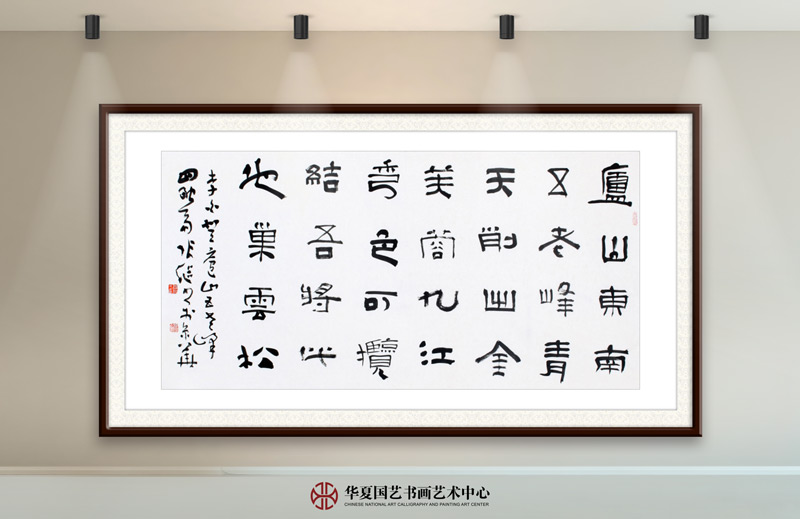 廬山東南
五老峰青
天削出金
芙蓉九江
秀色可攬
結吾將此
地巢雲松
李白登廬山五老峰
四融斋张继
京華
华夏国艺书画艺术中心
CHINESE NATIONAL ART CALLIGRAPHY AND PAINTING ART CENTER